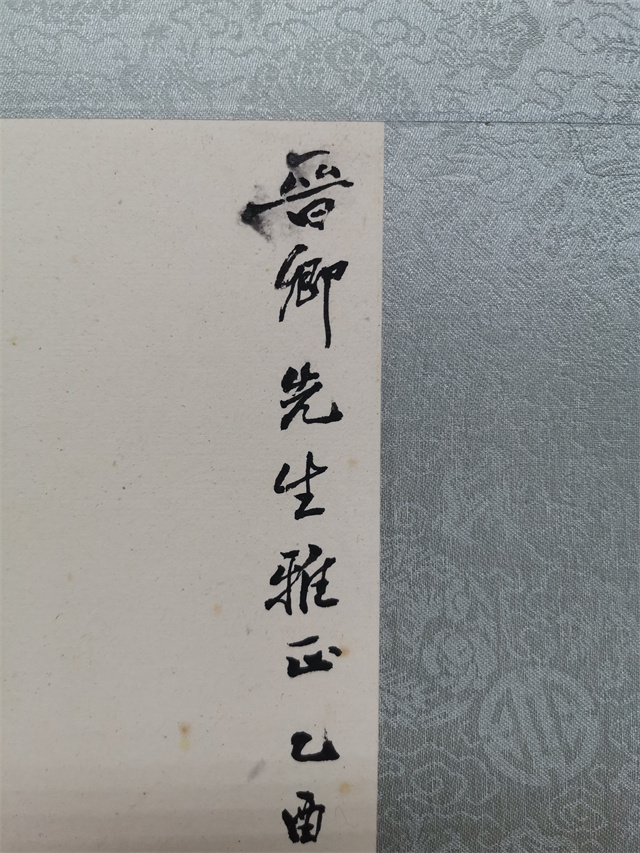 晉卿先生雅正乙酉